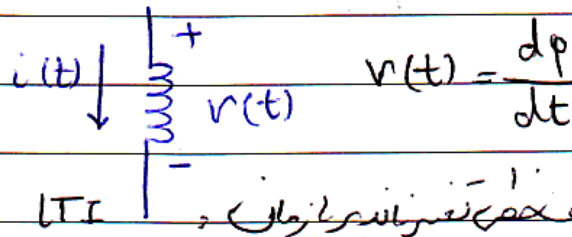 i(t) + v(t) v(t) = dφ/dt
-
LTI خطی تغییرناپذیر با زمان ،